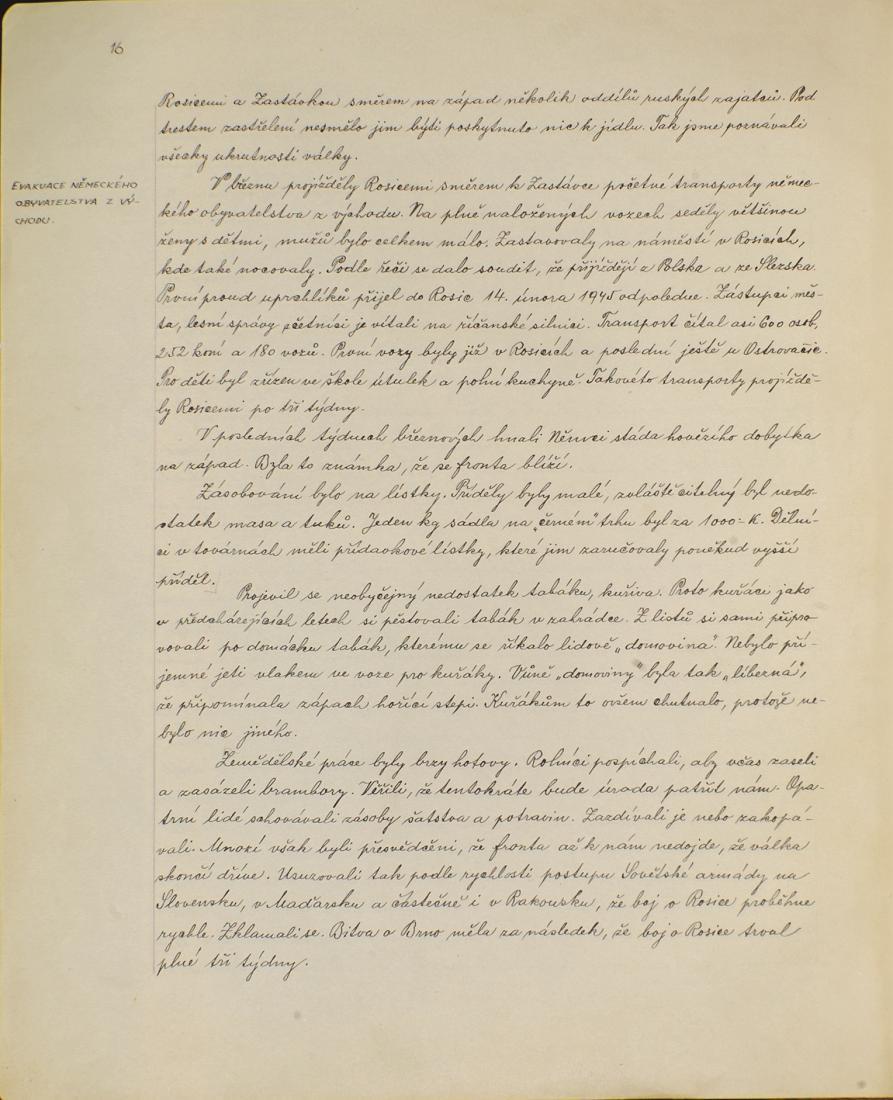 16
Rosicemi a Zastávkou směrem na západ několik oddílů ruských zajatců. Pod
trestem zastřelení nesmělo jim býti poskytnuto nic k jídlu. Tak jsme poznávali
všecky ukrutnosti války.
EVAKUACE NĚMECKÉHO
OBYVATELSTVA Z VÝ-
CHODU.
V březnu projížděly Rosicemi směrem k Zastávce početné transporty němec-
kého obyvatelstva z východu. Na plně naložených vozech seděly většinou
ženy s dětmi, mužů bylo celkem málo. Zastavovaly na náměstí v Rosicích,
kde také nocovaly. Podle řeči se dalo soudit, že přijíždějí z Polska a ze Slezska.
První proud uprchlíků přijel do Rosic 14. února 1945 odpoledne. Zástupci měs-
ta, lesní správy a četníci je vítali na říčanské silnici. Transport čítal asi 600 osob,
252 koní a 180 vozů. První vozy byly již v Rosicích a poslední ještě u Ostrovačic.
Pro děti byl zřízen ve škole útulek a polní kuchyně. Takovéto transporty projíždě-
ly Rosicemi po tři týdny.
V posledních týdnech březnových hnali Němci stáda hovězího dobytka
na západ. Byla to známka, že se fronta blíží.
Zásobování bylo na lístky. Příděly byly malé, zvláště citelný byl nedo-
statek masa a tuků. Jeden kg sádla na „černém" trhu byl za 1000.- K. Dělní-
ci v továrnách měli přídavkové lístky, které jim zaručovaly poněkud vyšší
příděl.
Projevil se neobyčejný nedostatek tabáku, kuřiva. Proto kuřáci jako
v předcházejících letech si pěstovali tabák v zahrádce. Z listů si sami připra-
vovali po domácku tabák, kterému se říkalo lidově „domovina". Nebylo pří-
jemné jeti vlakem ve voze pro kuřáky. Vůně „domoviny" byla tak „líbezná",
že připomínala zápach hořící stepi. Kuřákům to ovšem chutnalo, protože ne-
bylo nic jiného.
Zemědělské práce byly brzy hotovy. Rolníci pospíchali, aby včas zaseli
a zasázeli brambory. Věřili, že tentokráte bude úroda patřit nám. Opa-
trní lidé schovávali zásoby šatstva a potravin. Zazdívali je nebo zakopá-
vali. Mnozí však byli přesvědčeni, že fronta až k nám nedojde, že válka
skončí dříve. Usuzovali tak podle rychlosti postupu Sovětské armády na
Slovensku, v Maďarsku a částečně i v Rakousku, že boj o Rosice proběhne
rychle. Zklamali se. Bitva o Brno měla za následek, že boj o Rosice trval
plné tři týdny.